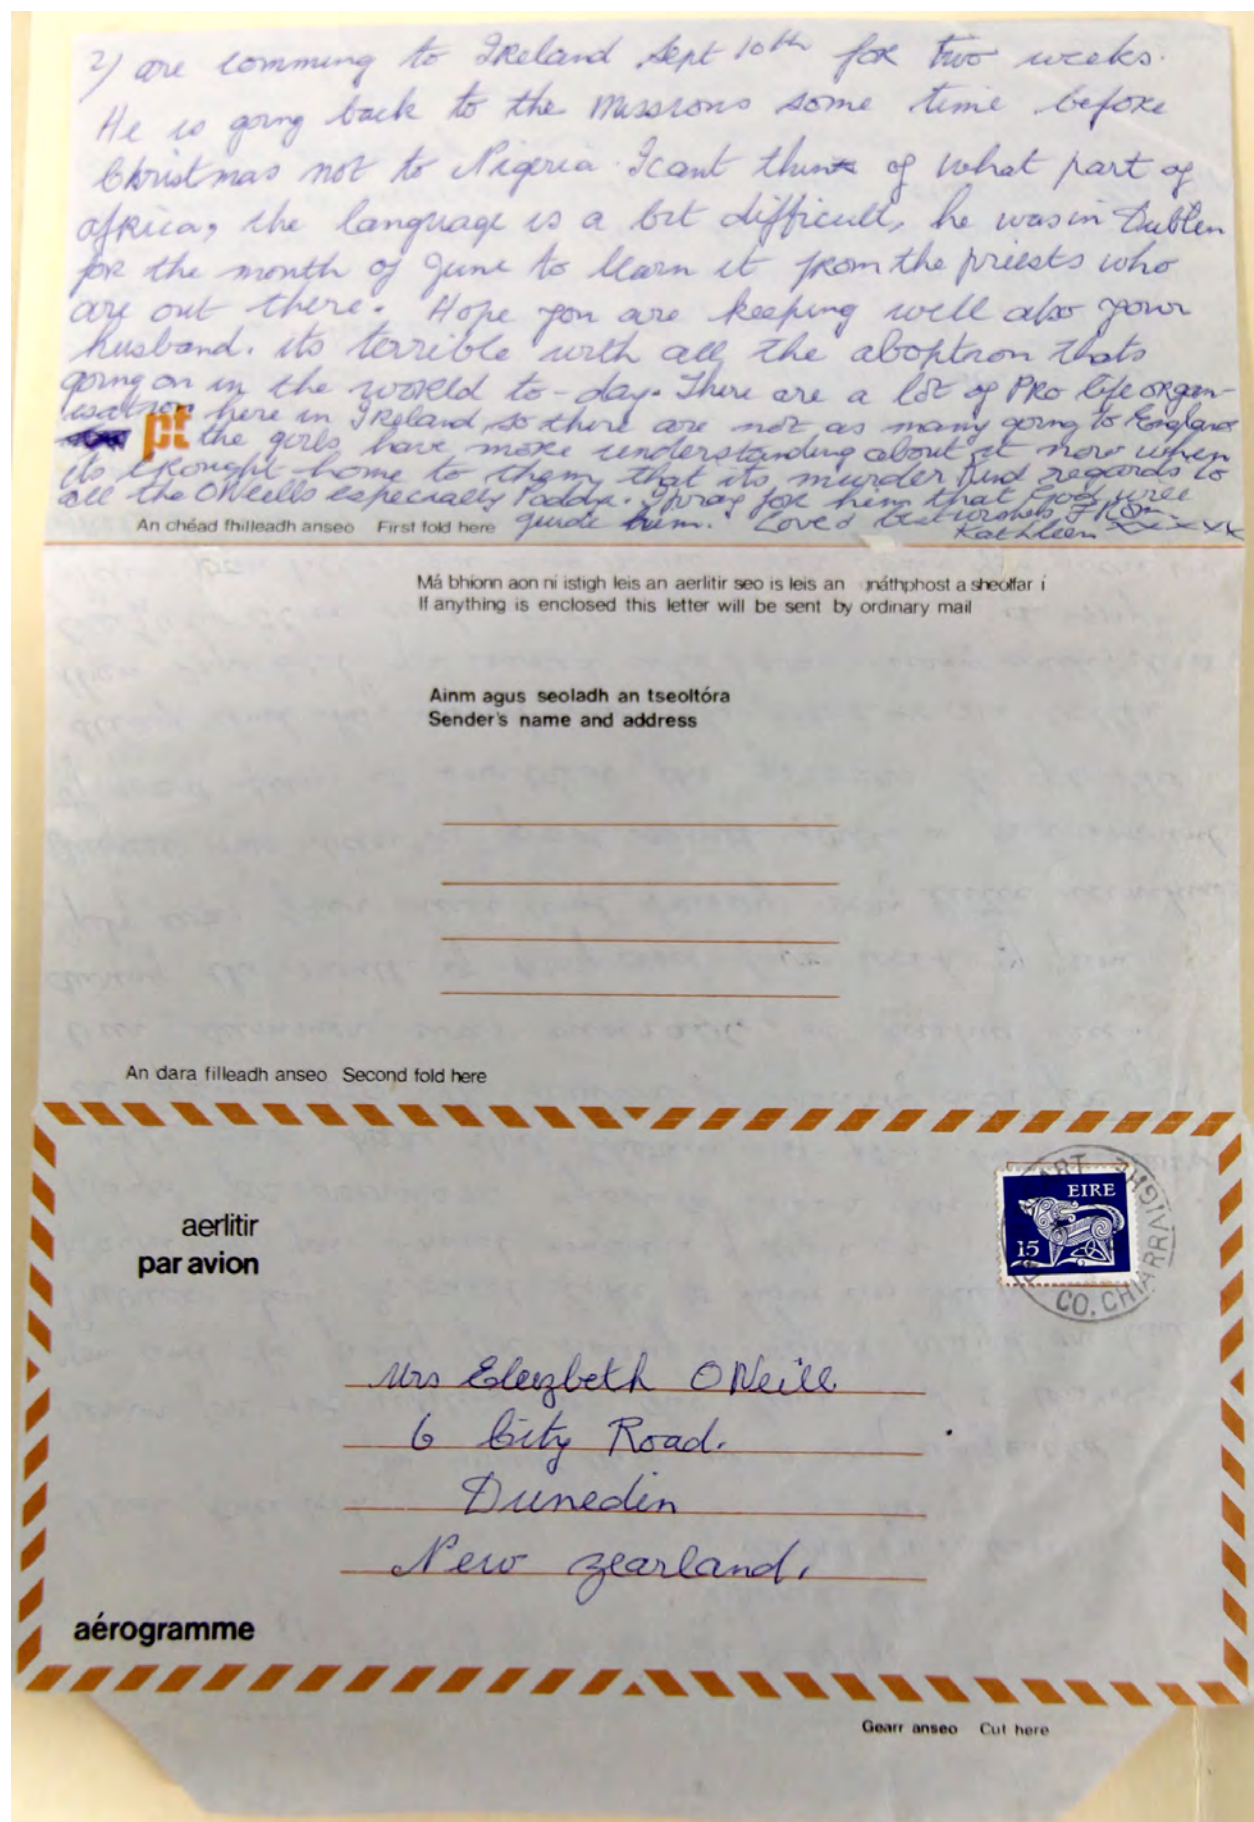 2) are comming to IReland Sept 10th foR two weeks.
He is going back to the Missions some time befoRe
Christmas not to Nigeria. I cant think of what part of
afRica, the language is a bit difficult, he was in Dublen
foR the month of June to learn it fRom the priests who
are out there. Hope you are keeping well also your
husband. its terrible with all the aboption thats
going on in the woRld to-day. There are a lot of PRo life oRgan-
isation here in IReland, so there are not as many going to England
pt
the girls have moRe understanding about it now when
its bRought home to them, that its murder Kind regards to
all the ONeills especially Paddy. I pray foR him that God will
guide him. Love & best wishes FRom
Kathleen xxxxx
An chéad fhilleadh anseo First fold here
Má bhíonn aon ní istigh leis an aerlitir seo is leis an ngnáthphost a sheolfar í
If anything is enclosed this letter will be sent by ordinary mail
Ainm agus seoladh an tseoltóra
Sender's name and address
An dara filleadh anseo Second fold here
aerlitir
par avion
EIRE
15
CO. CHIARRAIGHE
Mrs Elezbeth ONeill
6 City Road.
Dunedin
New Zearland.
aérogramme
Gearr anseo Cut here